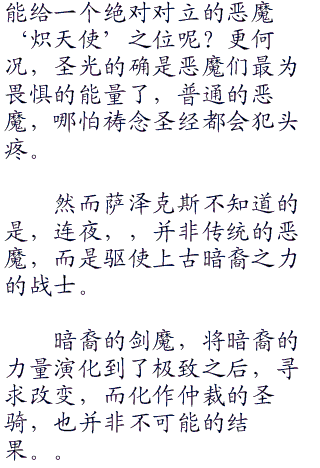 能给一个绝对对立的恶魔
‘炽天使’之位呢？更何
况，圣光的确是恶魔们最为
畏惧的能量了，普通的恶
魔，哪怕祷念圣经都会犯头
疼。
然而萨泽克斯不知道的
是，连夜，，并非传统的恶
魔，而是驱使上古暗裔之力
的战士。
暗裔的剑魔，将暗裔的
力量演化到了极致之后，寻
求改变，而化作仲裁的圣
骑，也并非不可能的结
果。。